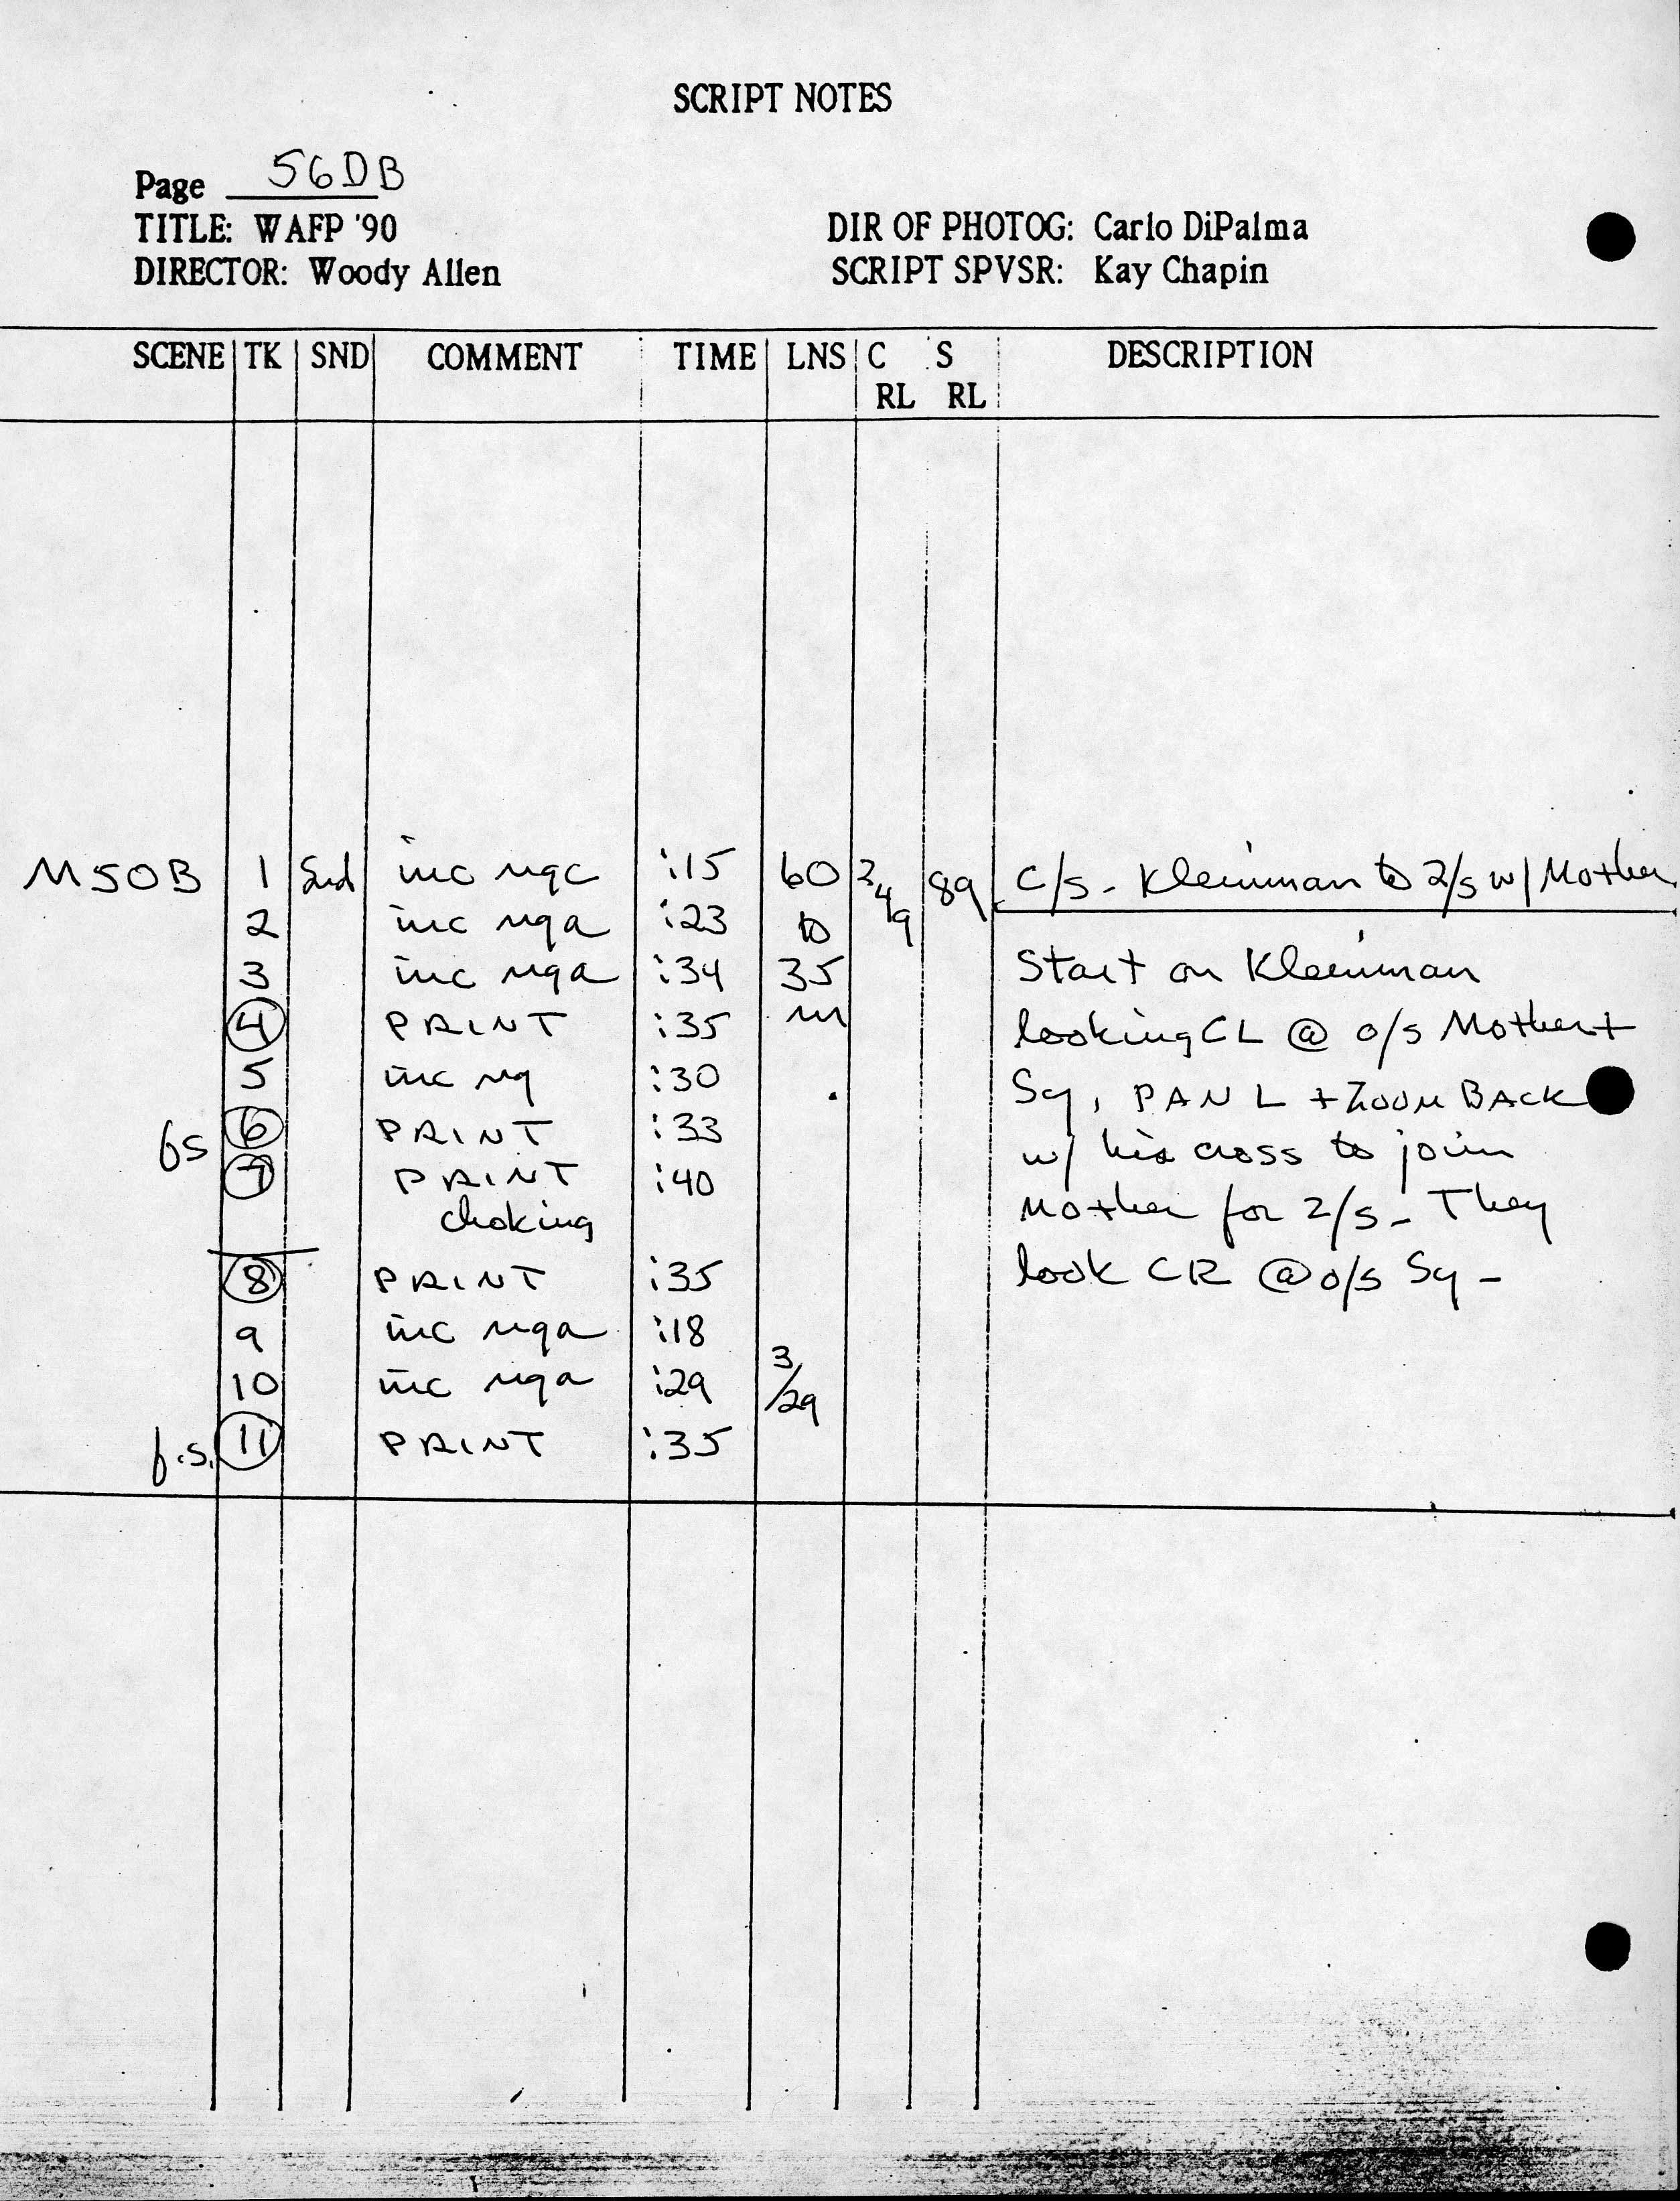 SCRIPT NOTES
Page 56DB
TITLE: WAFP '90
DIRECTOR: Woody Allen
DIR OF PHOTOG: Carlo DiPalma
SCRIPT SPVSR: Kay Chapin
SCENE TK SND COMMENT TIME LNS C RL S RL DESCRIPTION
M50B 1 Snd inc ngc :15 60 89 C/S - Kleinman to 2/S w/ Mother
2 inc nga :23 to
3 inc nga :34 35 Start on Kleinman
4 PRINT :35 m looking CL @ o/s Mother +
5 inc ng :30 Sy, PAN L + ZOOM BACK
fs 6 PRINT :33 w/ his cross to join
7 PRINT :40 Mother for 2/s - They
choking
8 PRINT :35 look CR @ o/s Sy -
9 inc nga :18
10 inc nga :29 3/29
f.s. 11 PRINT :35